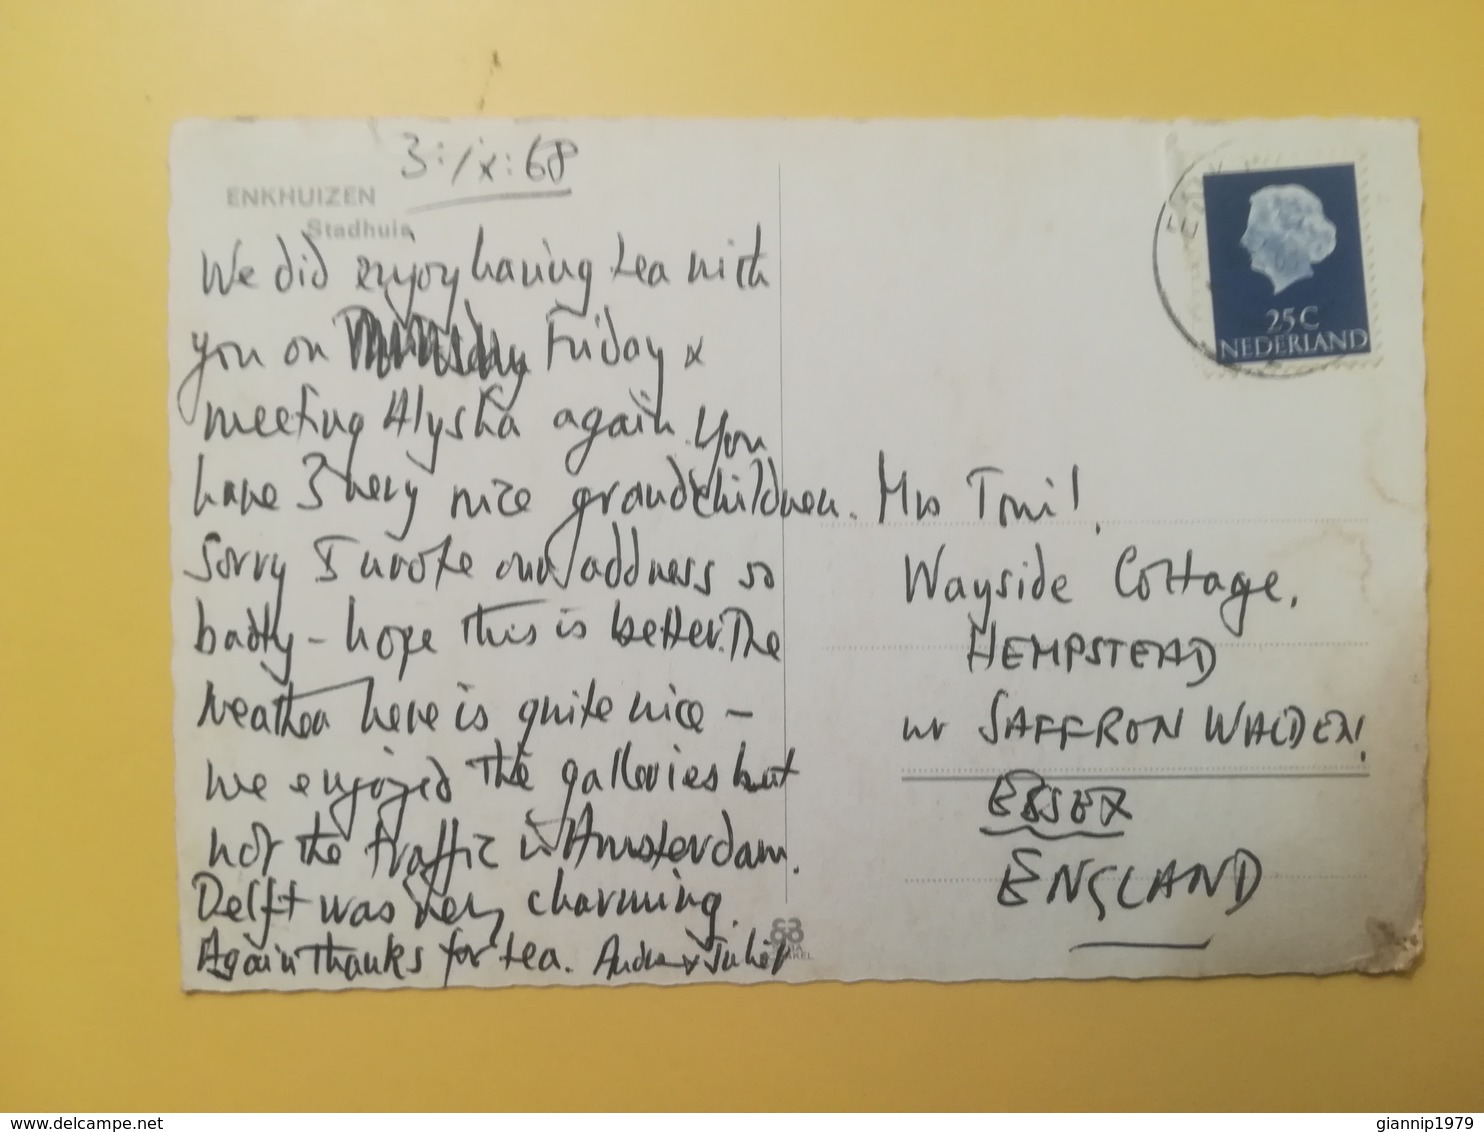 3:/x:68
ENKHUIZEN
Stadhuis
We did enjoy having tea with
you on Friday &
meeting Alyska again. You
have 3 very nice grandchildren.
Sorry I wrote our address so
badly - hope this is better. The
weather here is quite nice -
we enjoyed the galleries but
not the traffic in Amsterdam.
Delft was very charming.
Again thanks for tea. &
25C
NEDERLAND
Mrs Toni!
Wayside Cottage,
HEMPSTEAD
nr SAFFRON WALDEN!
ESSEX
ENGLAND
www.delcampe.net
giannip1979